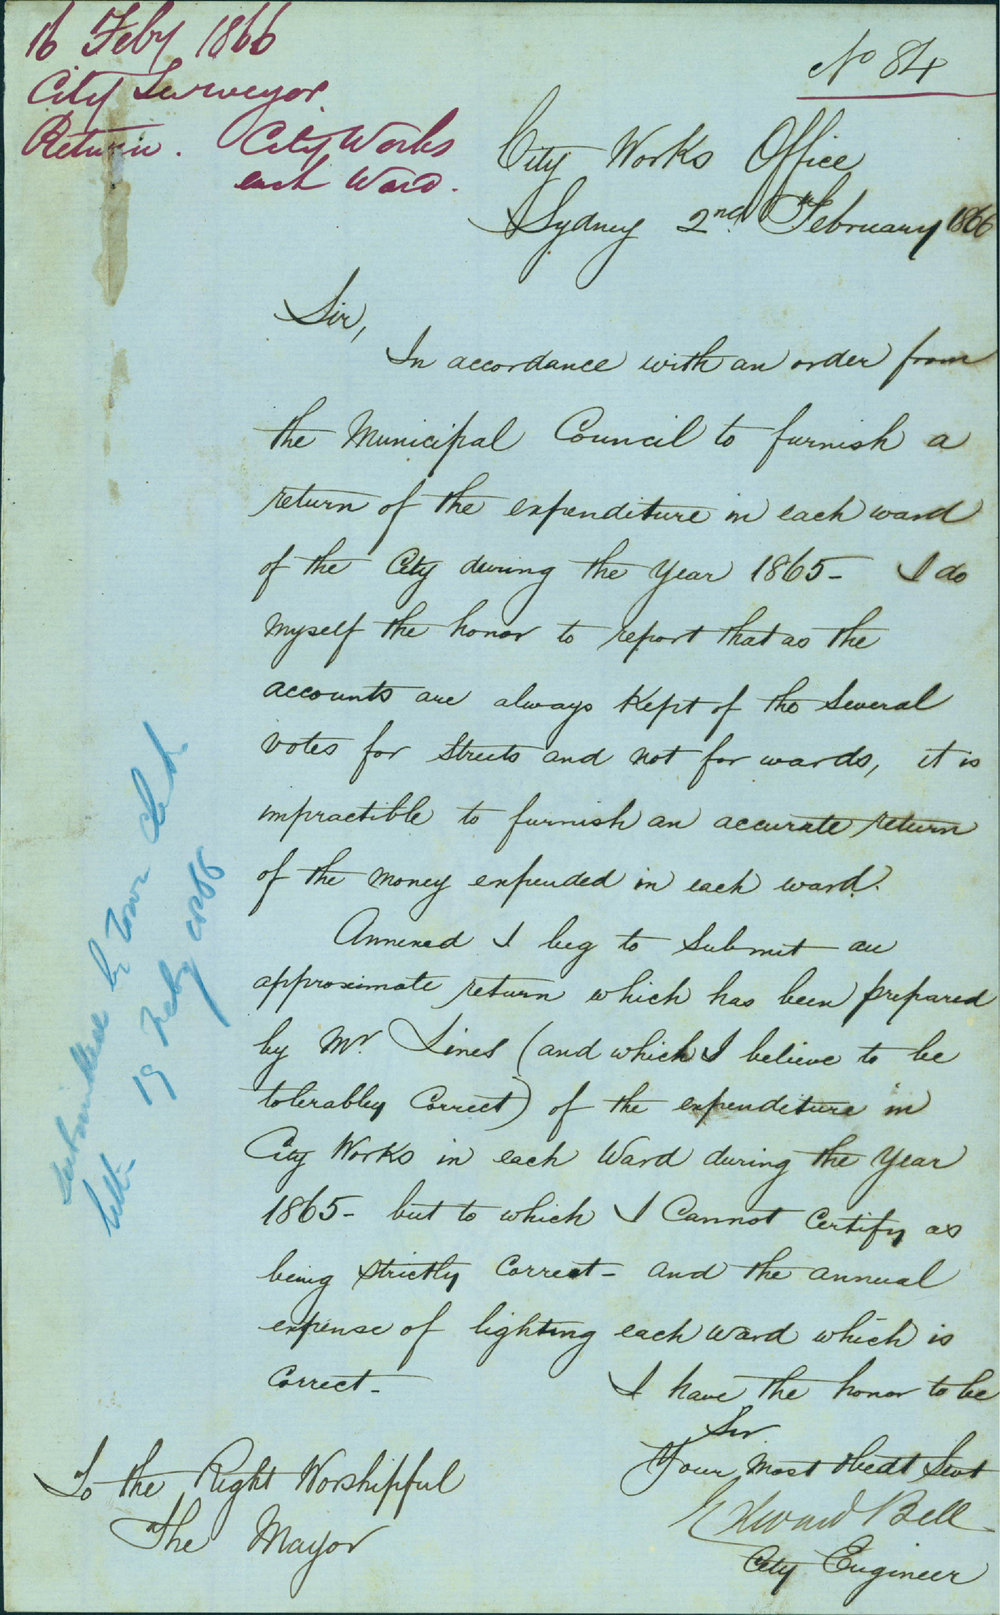 16 Feby 1866
City Surveyor.
Return. City Works
each Ward.
No 84
City Works Office
Sydney 2nd February 1866
Sir,
In accordance with an order from
the Municipal Council to furnish a
return of the expenditure in each ward
of the City during the Year 1865 - I do
myself the honor to report that as the
accounts are always kept of the several
votes for Streets and not for wards, it is
impractible to furnish an accurate return
of the money expended in each ward.
Annexed I beg to submit an
approximate return which has been prepared
by Mr. Lines (and which I believe to be
tolerabley Correct) of the expenditure in
City Works in each Ward during the Year
1865 - but to which I Cannot Certify as
being Strictly Correct - and the annual
expense of lighting each ward which is
Correct -
I have the honor to be
Sir
Your most obedt Servt
Edward Bell
City Engineer
To the Right Worshipful
The Mayor
by Town Clerk
19 Feby 1866